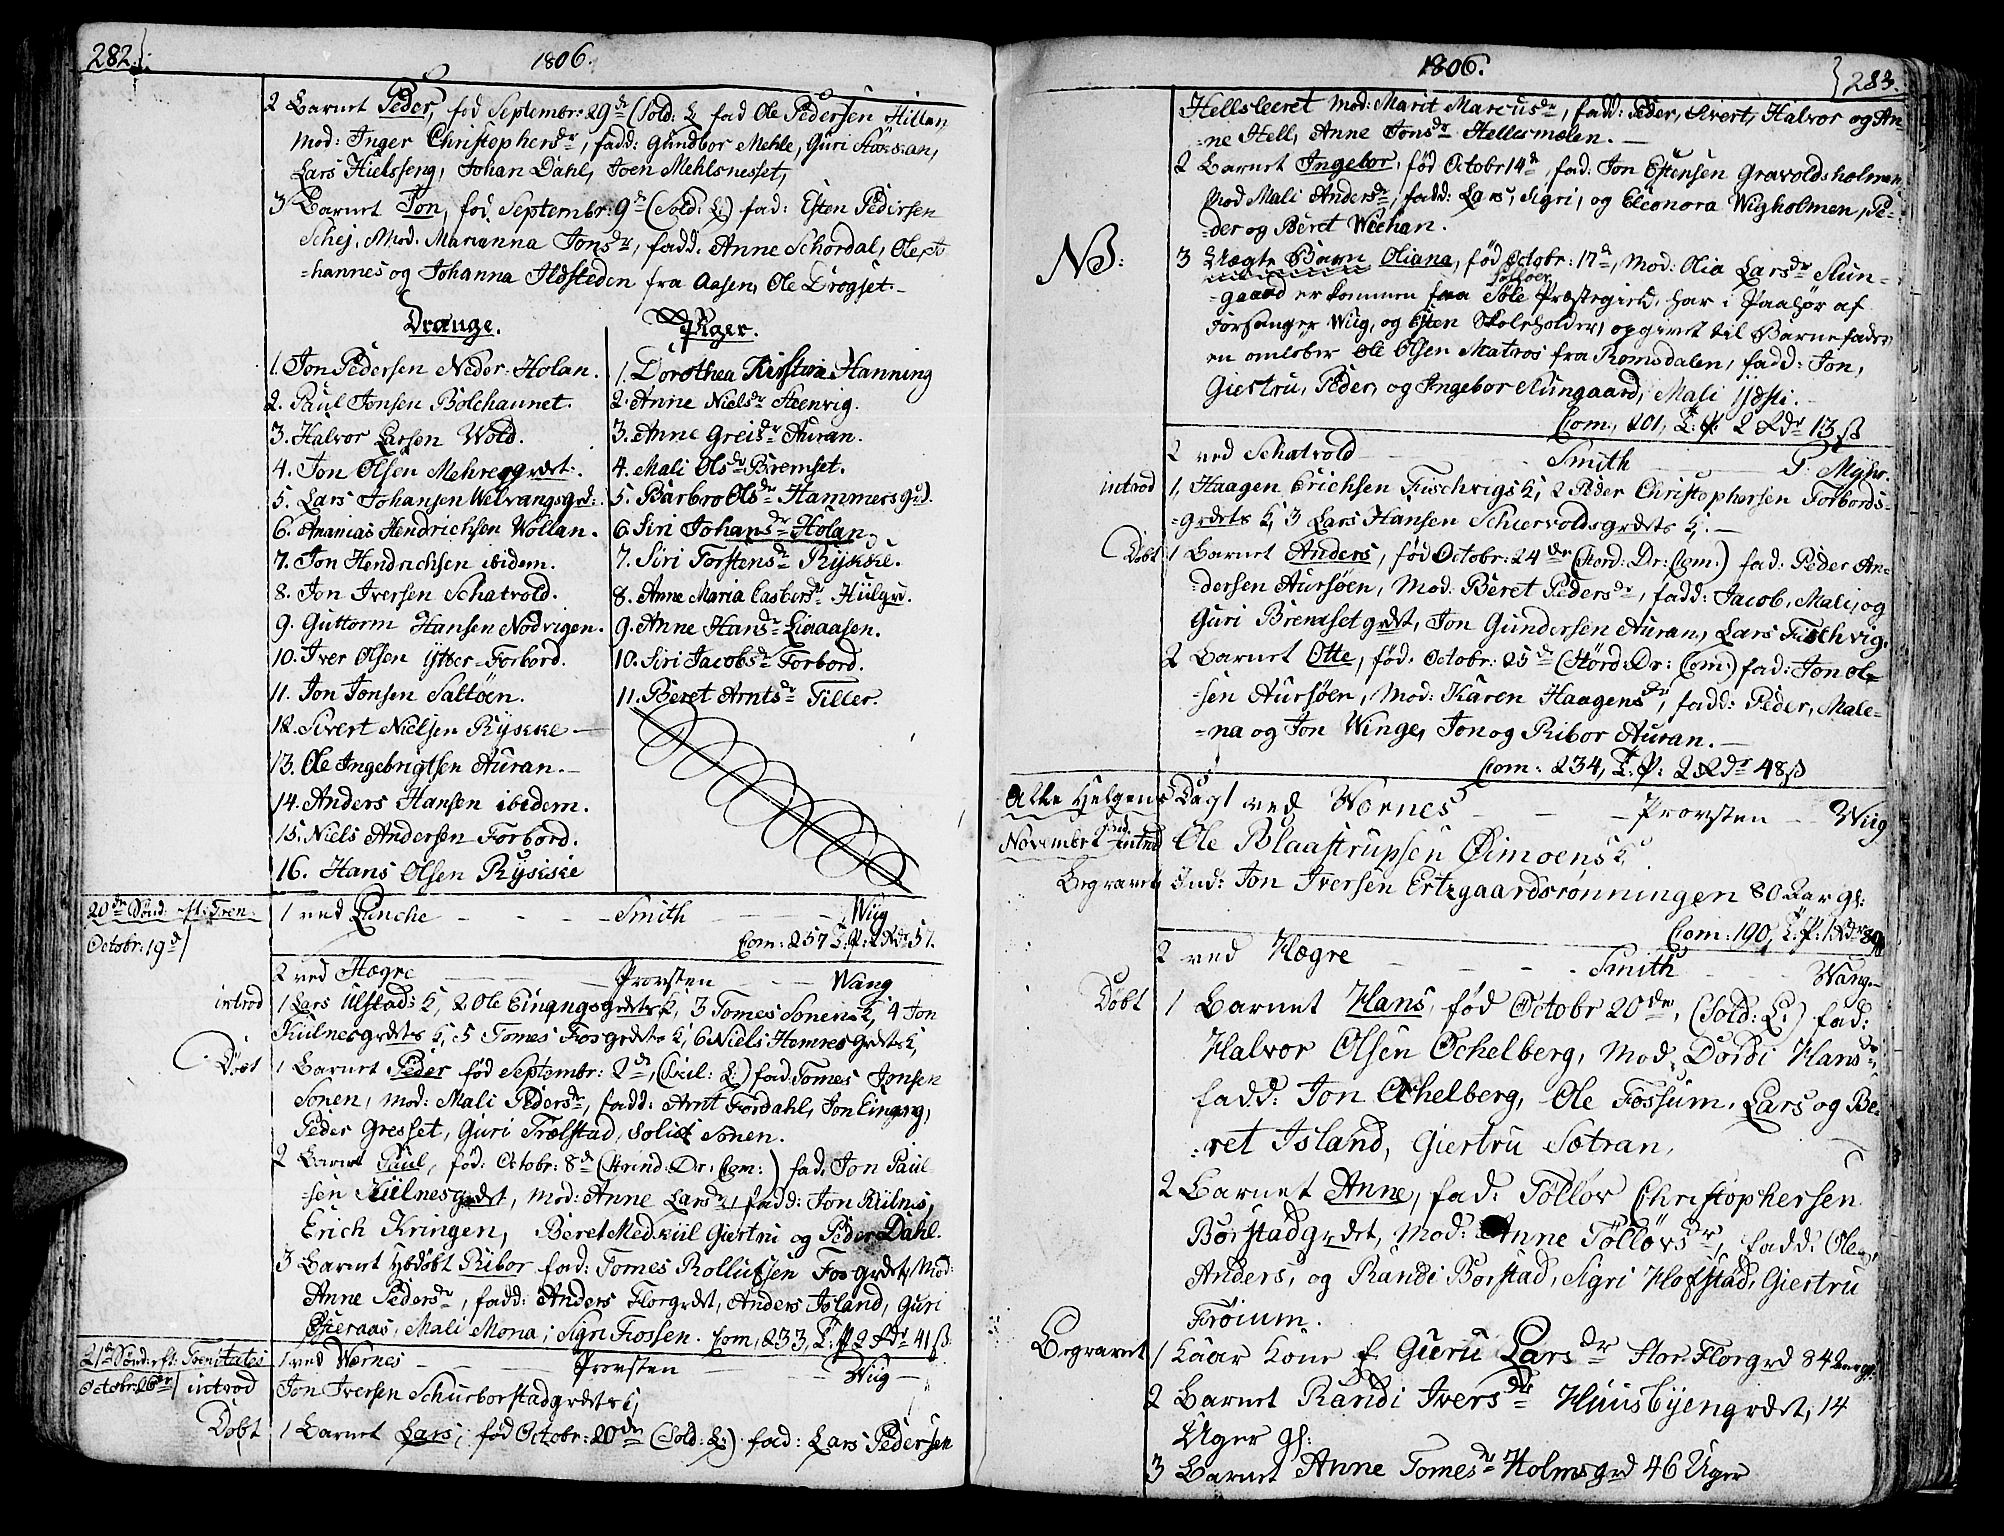 282.
1806.
2 Barnet Peder, fød Septembr: 29de (Sold: L fad Ole Pedersen Hillan
Mod: Inger Christophersdr, fadd: Gundbor Mehle, Guri
Lars Hielsseng, Johan Dahl, Joen Mehlsnesset,
3 Barnet Jon, fød Septembr: 9de (Sold: L) fad: Esten Pedersen
Schej, Mod. Marianna Jonsdr, fadd. Anne Schordal, Ole, Jo
=hannes og Johanna Ildsteden fra Aasen, Ole Drogset.
Drænge.
1. Jon Pedersen Neder-Holan.
2. Paul Jonsen Bolchaunet.
3. Halvor Larsen Wold.
4. Jon Olsen Mehregrdet.
5. Lars Johansen Welvangsgrd:
6. Ananias Hendrichsen Wollan.
7. Jon Hendrichsen ibidem.
8. Jon Iversen Schatvold.
9. Guttorm Hansen Nodvigen.
10. Iver Olsen Ytter-Forbord.
11. Jon Jonsen Saltøen.
12. Sivert Nielsen Rÿskke
13. Ole Ingebrigtsen Auran.
14. Anders Hansen ibidem.
15. Niels Andersen Forbord.
16. Hans Olsen Rÿskke
Piger.
1. Dorothea Kirstina Hanning
2. Anne Nielsdr Steenvig.
3. Anne Greisdr Auran.
4. Mali Olsdr Bremset.
5. Barbro Olsdr Hammersgrd.
6. Siri Johansdr Holan
7. Siri Torstensdr Rÿskke.
8. Anne Maria Casbersdr Hiilgrd.
9. Anne Hansdr Livaasen.
10. Siri Jacobsdr Forbord.
11. Beret Arntsdr Tiller.
20de Sønd. eft: Tren:
Octobr: 19de
1 ved Lanche - Smith - Wiig
Com: 257 T. P: 2 Rdr 57.
2 ved Hægre - Provsten - Wang
introd 1 Lars Ulstad: K, 2 Ole Eingngsgrdets K, 3 Tomes Sonens K, 4 Jon
Kulnesgrdets K, 5 Tomes Fosgrdets K, 6 Niels Hemresgrdets K,
Døbt 1 Barnet Peder fød Septembr: 2de, (Civil: L:) fad: Tomes Jonsen
Sonen, Mod: Mali Pedersdr, fadd: Arnt Fordahl, Jon Eingng,
Peder Gresset, Guri Trælstad, Solid Sonen.
2 Barnet Paul, fød: Octobr: 8de (Strind: Dr: Com:) fad: Jon Paul
=sen Kulnesgrdet, Mod: Anne Larsdr, fadd: Jon Kulnes,
Erich Kringen, Beret Medkiil Giertru og Peder Dahl.
3 Barnet Hdøbt Ribor fad: Tomes Rollufsen Fosgrdet, Mod:
Anne Pedersdr, fadd: Anders Florgrdet, Anders Island, Guri
Mali Mona, Sigri Fossen. Com, 233, T. P 2 Rdr 41 ß
21de Sønd: eft: Trenitates
Octobr: 26de
1 ved Wærnes - Provsten - Wiig
introd Jon Iversen Schurborstadgrdets K,
Døbt 1 Barnet Lars, fød Octobr: 20de (Sold: L:) fad: Lars Pedersen
1806.
283.
Hellsleeret Mod: Marit Marcusdr, fadd: Peder, Sivert, Halvor og An-
=ne Hell, Anne Jonsdr Hellesmælen.
2 Barnet Ingebor, fød Octobr 14de, fad: Jon Estensen Gravoldsholmen
Mod Mali Andersdr, fadd: Lars, Sigri, og Eleonora Wiigholmen, Pe-
=der og Beret Wichan.
NB:
3 Uægte Barn Oliana, fød Octobr: 17de, Mod: Olia Larsdr Slun-
=gaard er kommen fra Søle Præstegield, har i Paahør af
Forsanger Wiig, og Esten Skoleholder, opgivet til Barnefader
en omløber Ole Olsen Matros fra Romsdalen, fadd: Jon,
Giertru, Peder, og Ingebor Slungaard, Mali Ydsti.
Com, 201, T. P: 2 Rdr 13 ß
2 ved Schatvold - Smith - P. Mÿhr.
introd 1, Haagen Erichsen Fischvigs K, 2 Peder Christophersen Forbords-
=grdets K, 3 Lars Hansen Schiervoldsgrdets K.
Døbt 1 Barnet Anders, fød Octobr: 24de (Stord: Dr: Com:) fad: Peder An-
=dersen Aursøen, Mod: Beret Pedersdr, fadd: Jacob, Mali, og
Guri Bremsetgrdet, Jon Gundersen Auran, Lars Fischvig.
2 Barnet Otte, fød. Octobr: 25de (Stord: Dr: Com:) fad: Jon Ol-
=sen Aursøen, Mod: Karen Haagensdr, fadd: Peder, Male-
=na og Jon Winge, Jon og Ribor Auran.
Com: 234, T. P: 2 Rdr 48 ß
Alle Helgens Dag 1 ved Wærnes - Provsten - Wiig
November 2de introd Ole Blaastrupsen Øimoens K
Begravet Ind: Jon Iversen Ertzgaardsrønningen 80 Aar gl:
Com: 190, T. P: 1 Rdr
2 ved Hægre - Smith - Wang.
Døbt 1 Barnet Hans, fød Octobr 20de, (Sold: L:) fad:
Halvor Olsen Ochelberg, Mod, Dordi Hansdr,
fadd: Jon Ochelberg, Ole Fossum, Lars og Be-
=ret Island, Giertru Sætran,
2 Barnet Anne, fad: Tølløv Christophersen
Borstadgrdet, Mod: Anne Tølløvsdr, fadd: Ole,
Anders, og Randi Borstad, Sigri Hofstad, Giertru
Trøium.
Begravet 1 Kaar Kone Guru Larsdr Stor-Florgrd 84 Aar gl:
2 Barnet Randi Iversdr Huusbyengrdet, 14
Uger gl:
3 Barnet Anne Tomesdr Holmsgrd 46 Uger